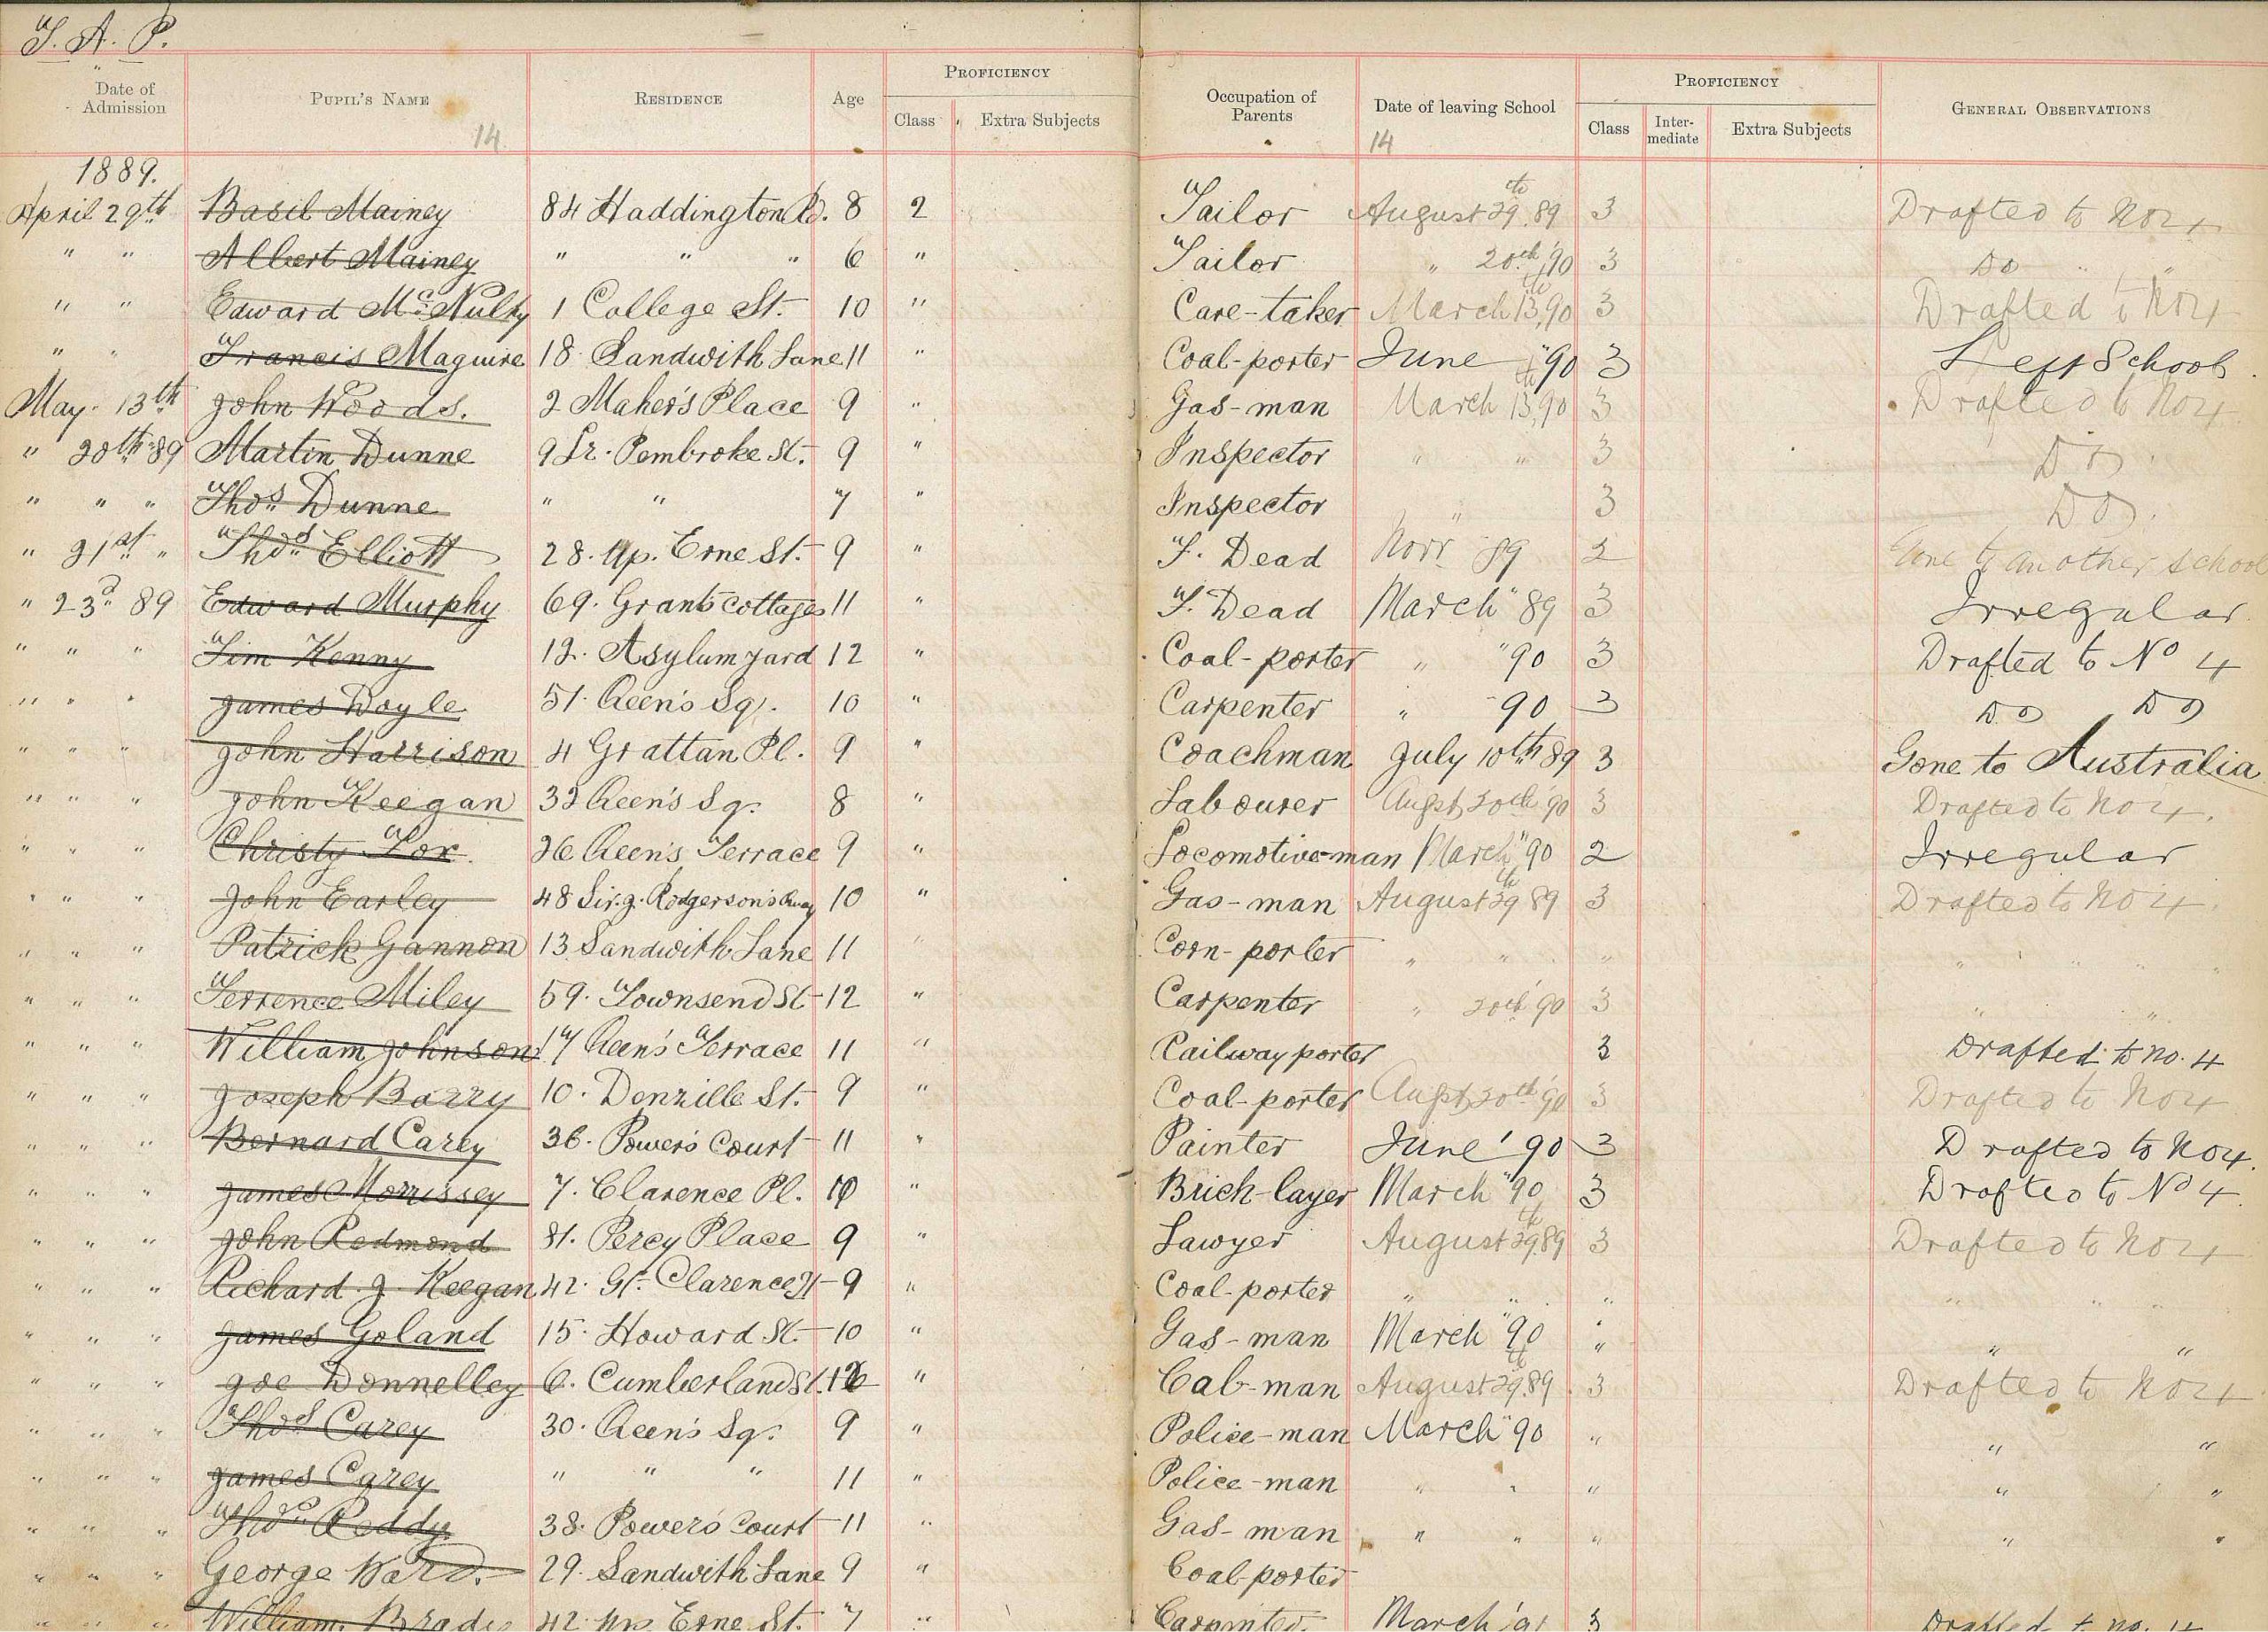 T. A. P.
Date of Admission PUPIL'S NAME RESIDENCE Age PROFICIENCY Class Extra Subjects Occupation of Parents Date of leaving School PROFICIENCY Class Inter-mediate Extra Subjects GENERAL OBSERVATIONS
14 14
1889.
April 29th Basil Mainey 84 Haddington Rd. 8 2 Tailor August 29th 89 3 Drafted to No 4
" " Albert Mainey " " " 6 " Tailor " 20th '90 3 Do " "
" " Edward McNulty 1 College St. 10 " Care-taker March 13th, 90 3 Drafted to No 4
" " Francis Maguire 18 Sandwith Lane 11 " Coal-porter June "90 3 Left School.
May 13th John Woods. 2 Maher's Place 9 " Gas-man March 13th, 90 3 Drafted to No 4
" 20th 89 Martin Dunne 9 Lr. Pembroke St. 9 " Inspector " " 3 Do.
" " " Thos Dunne " " 7 " Inspector " 3 Do.
" 21st " Thos Elliott 28. Up. Erne St. 9 " F. Dead Novr 89 2 Gone to another school
" 23d 89 Edward Murphy 69. Grants cottages 11 " F. Dead March "89 3 Irregular
" " " Tim Kenny 12. Asylum yard 12 " Coal-porter " "90 3 Drafted to No 4
" " " James Doyle 51. Queen's Sq. 10 " Carpenter " 90 3 Do Do
" " " John Harrison 4 Grattan Pl. 9 " Coachman July 10th 89 3 Gone to Australia
" " " John Keegan 32 Queen's Sq. 8 " Labourer Augst 20th '90 3 Drafted to No 4.
" " " Christy Fox. 26 Queen's Terrace 9 " Locomotive-man March "90 2 Irregular
" " " John Earley 48 Sir. J. Rodgerson's Quay 10 " Gas-man August 29th 89 3 Drafted to No 4.
" " " Patrick Gannon 13 Sandwith Lane 11 " Corn-porter " " " " " " "
" " " Terrence Miley 59. Townsend St 12 " Carpenter " 20th '90 3 " "
" " " William Johnson 17 Queen's Terrace 11 " Railway porter 3 Drafted to no. 4
" " " Joseph Barry 10. Denzille St. 9 " Coal-porter Augst, 20th '90 3 Drafted to No 4
" " " Bernard Carey 36. Power's Court 11 " Painter June '90 3 Drafted to No 4.
" " " James Morrissey 7. Clarence Pl. 10 " Brick-layer March "90 3 Drafted to No 4.
" " " John Redmond 81. Percy Place 9 " Lawyer August 29th, 89 3 Drafted to No 4
" " " Richard J. Keegan 42. Gt. Clarence St 9 " Coal-porter " " " " " "
" " " James Goland 15. Howard St. 10 " Gas-man March "90 " " "
" " " Joe Donnelley 6. Cumberland St. " Cab-man August 29th. 89 3 Drafted to No 4
" " " Thos Carey 30. Queen's Sq. 9 " Police-man March "90 " " "
" " " James Carey " " " 11 " Police-man " " " " "
" " " Thos Reddy 38. Power's Court 11 " Gas-man " " " " "
" " " George Ward. 29. Sandwith Lane 9 " Coal-porter
" " " William Brady 42 Up Erne St. 7 " Carpenter March '91 3 Drafted to no. 4